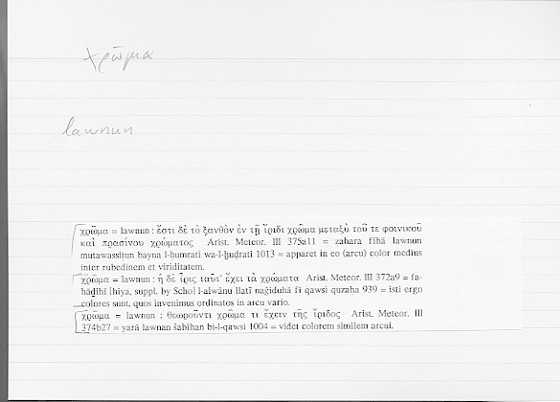 χρῶμα
lawnun
χρῶμα = lawnun : ἔστι δὲ τὸ ξανθὸν ἐν τῇ ἴριδι χρῶμα μεταξὺ τοῦ τε φοινικοῦ
καὶ πρασίνου χρώματος Arist. Meteor. III 375a11 = zahara fīhā lawnun
mutawassiṭun bayna l-ḥumrati wa-l-ḫuḍrati 1013 = apparet in eo (arcu) color medius
inter rubedinem et viriditatem.
χρῶμα = lawnun : ἡ δὲ ἶρις ταῦτ' ἔχει τὰ χρώματα Arist. Meteor. III 372a9 = fa-
hāḏihī ihiya, suppl. by Schol l-alwānu llatī naǧiduhā fī qawsi quzaḥa 939 = isti ergo
colores sunt, quos invenimus ordinatos in arcu vario.
χρῶμα = lawnun : θεωροῦντι χρῶμα τι ἔχειν τῆς ἴριδος Arist. Meteor. III
374b27 = yarā lawnan šabīhan bi-l-qawsi 1004 = videt colorem similem arcui.